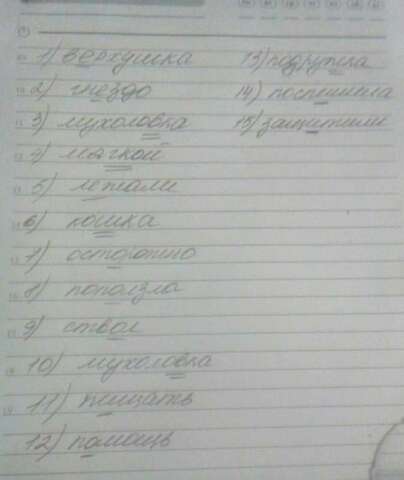 1) верхушка
2) гнездо
3) мухоловка
4) мягкой
5) летали
6) кошка
7) осторожно
8) поползла
9) ствол
10) мухоловка
11) пищать
12) помощь
13) подружка
14) поспешила
15) защитили